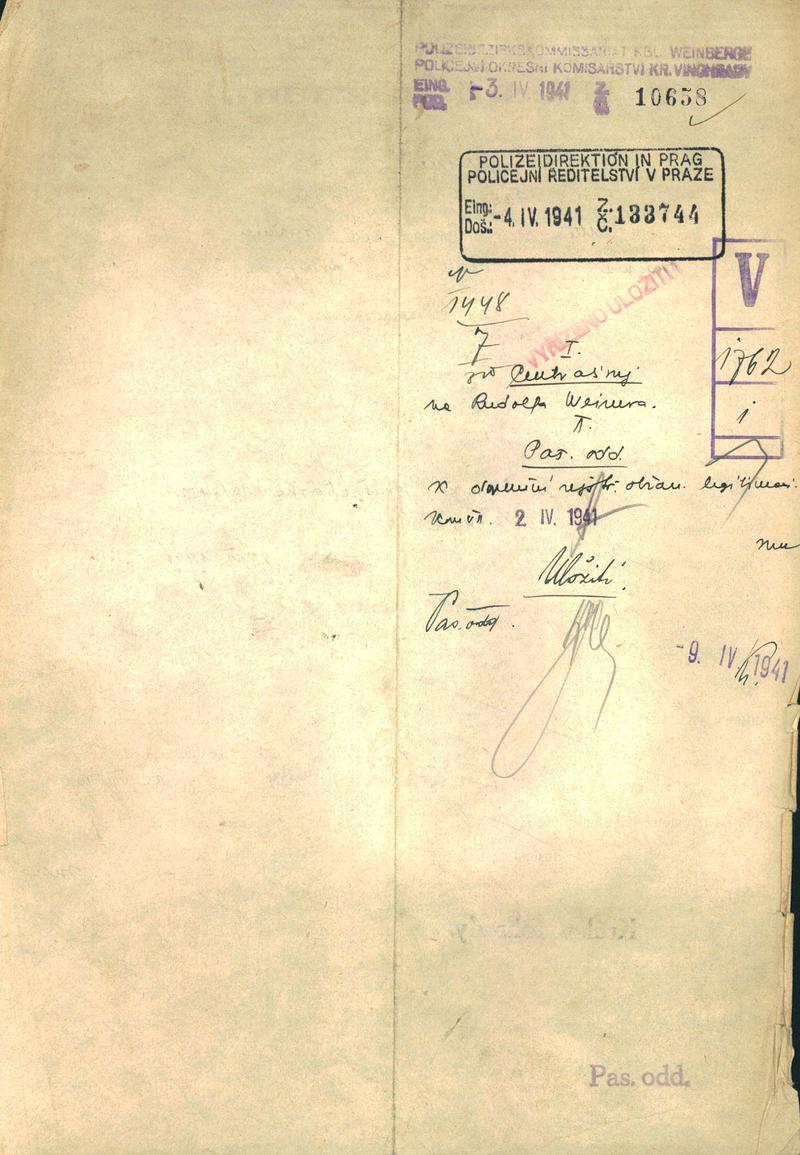 POLIZEIBEZIRKSKOMMISSARIAT KGL. WEINBERGE
POLICEJNÍ OKRESNÍ KOMISAŘSTVÍ KR. VINOHRADY
EING. POD. -3. IV 1941 Z. Č. 10658
POLIZEIDIREKTION IN PRAG
POLICEJNÍ ŘEDITELSTVÍ V PRAZE
Eing.: Doš.: -4. IV. 1941 Z. Č. 133744
V
1448
7
VYŘÍZENO ULOŽITI!
1762
I.
na Rudolfa Weinera.
1
II.
Pas. odd.
K obran. legitimací
2 IV. 1941
Uložiti.
Pas. odd.
-9. IV. 1941
Pas. odd.